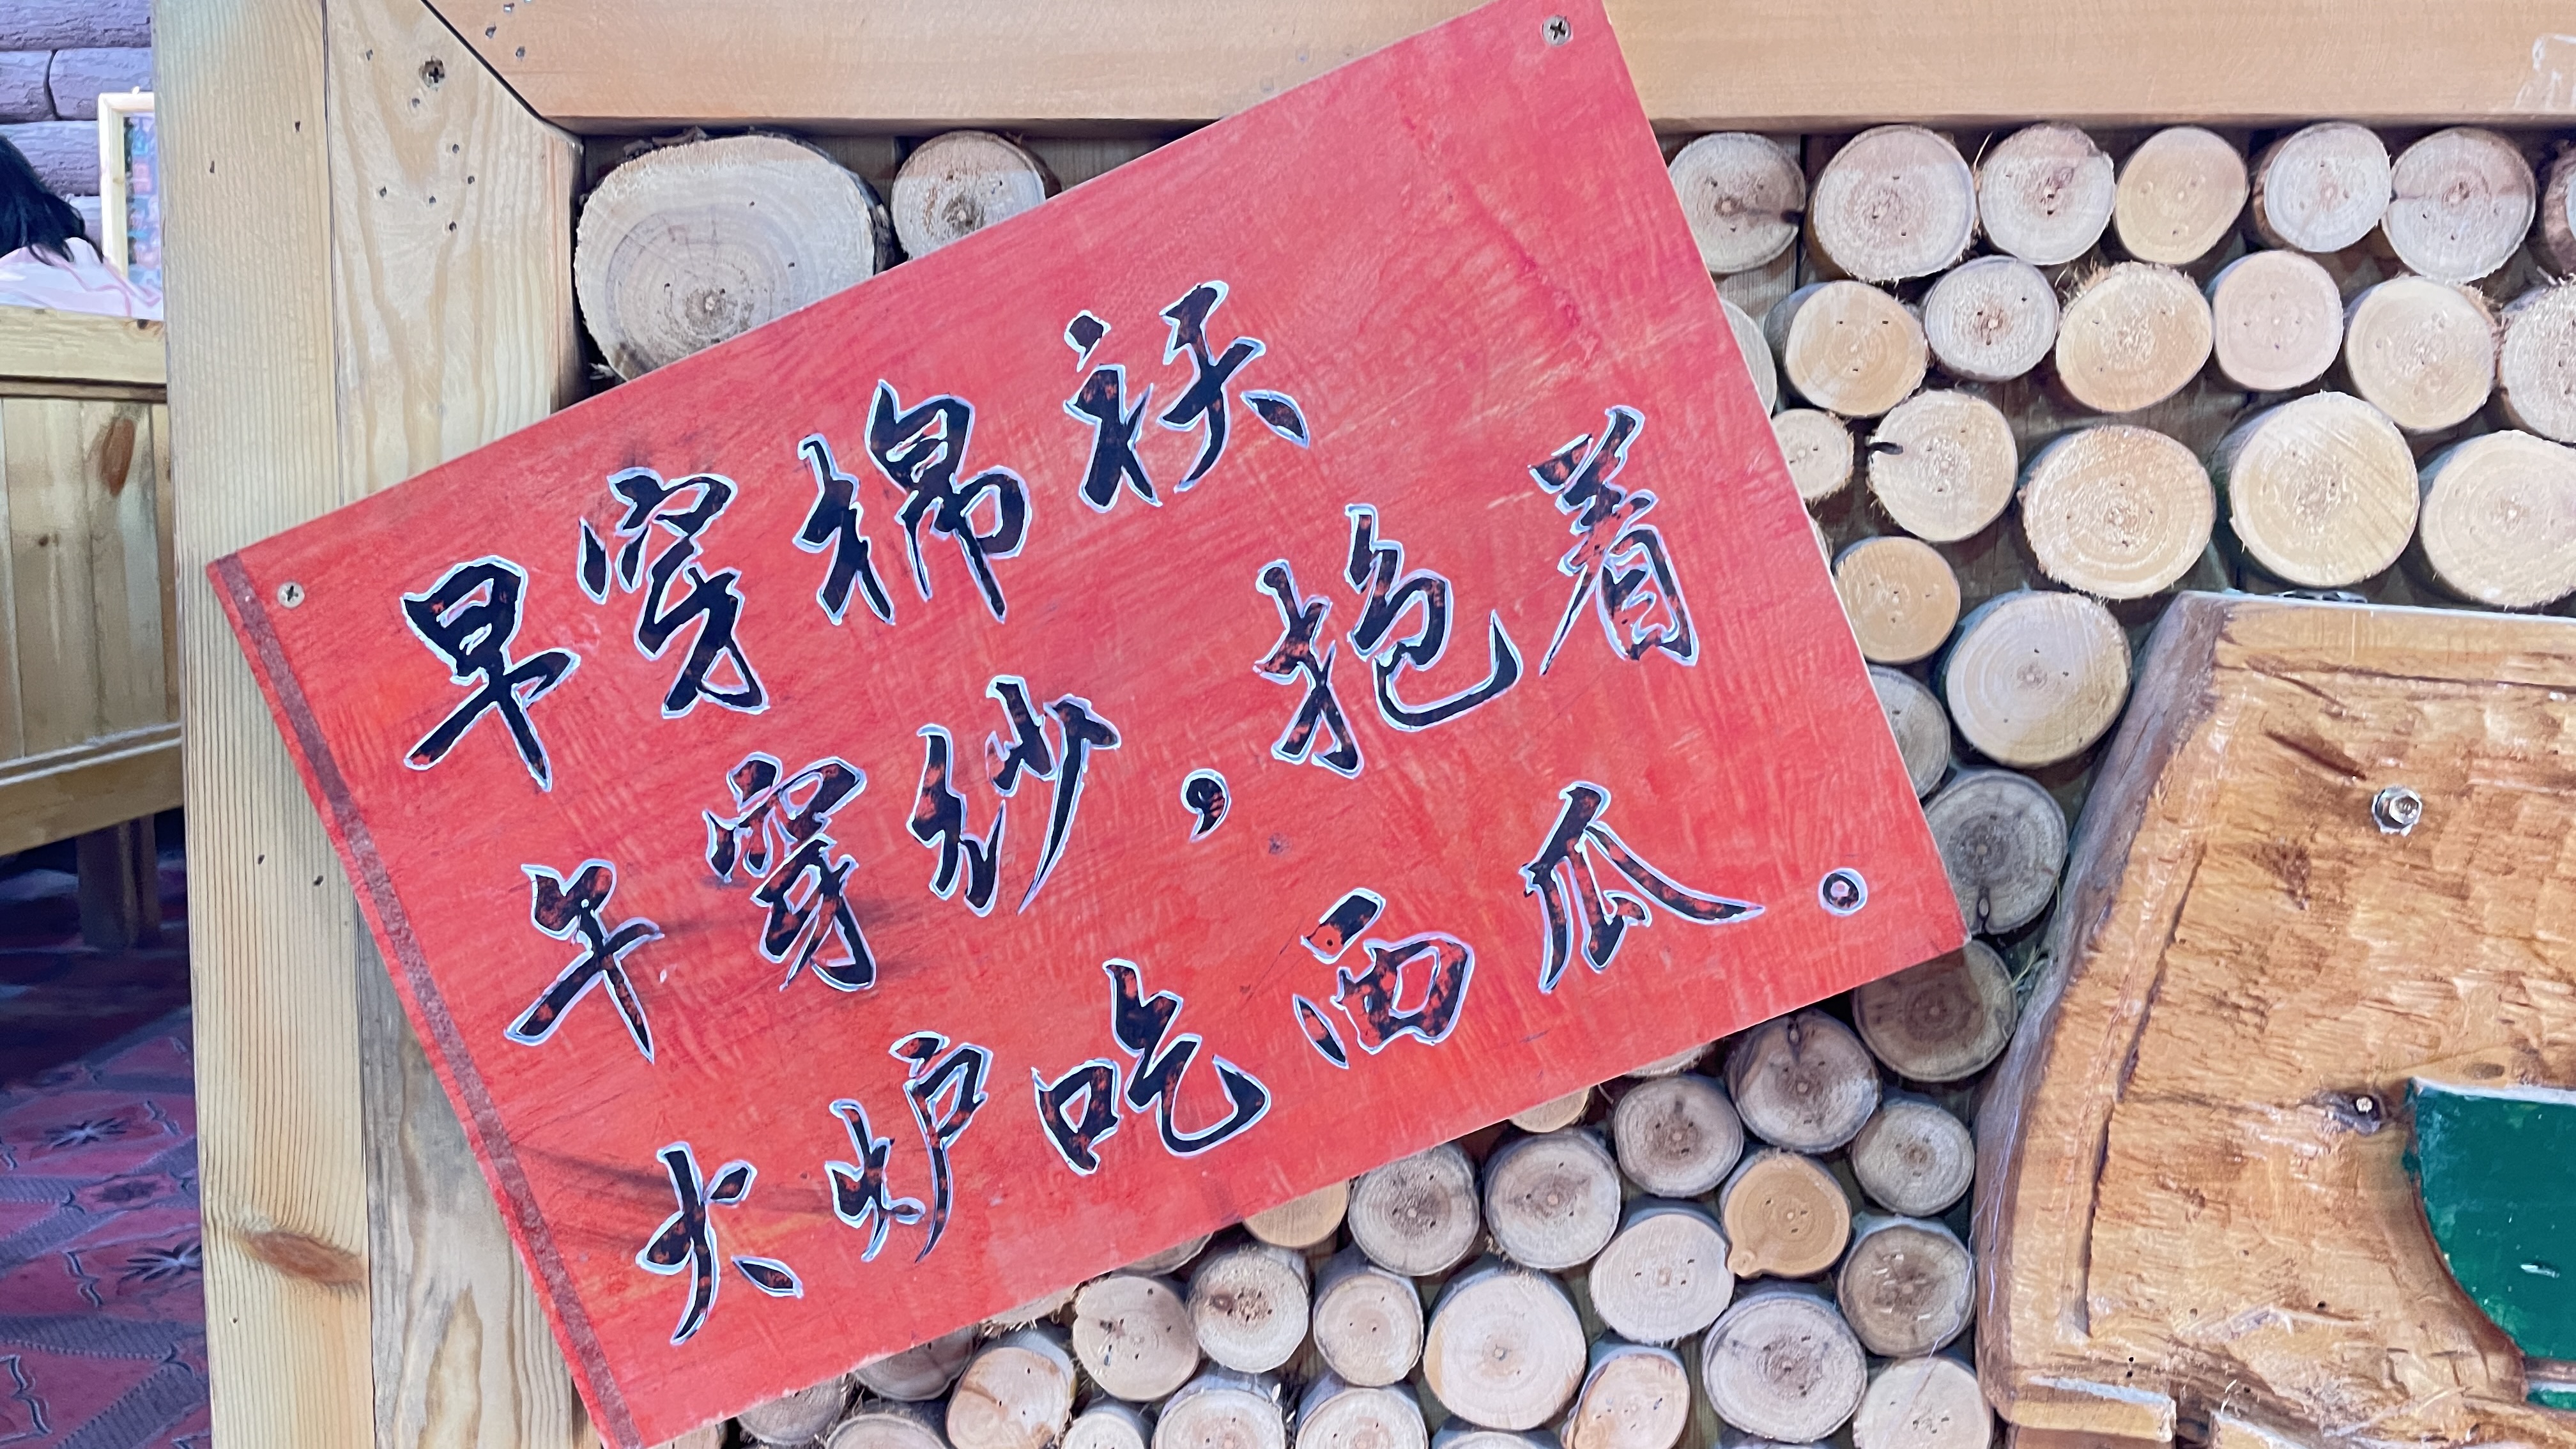 早穿棉袄
午穿纱，抱着
火炉吃西瓜。